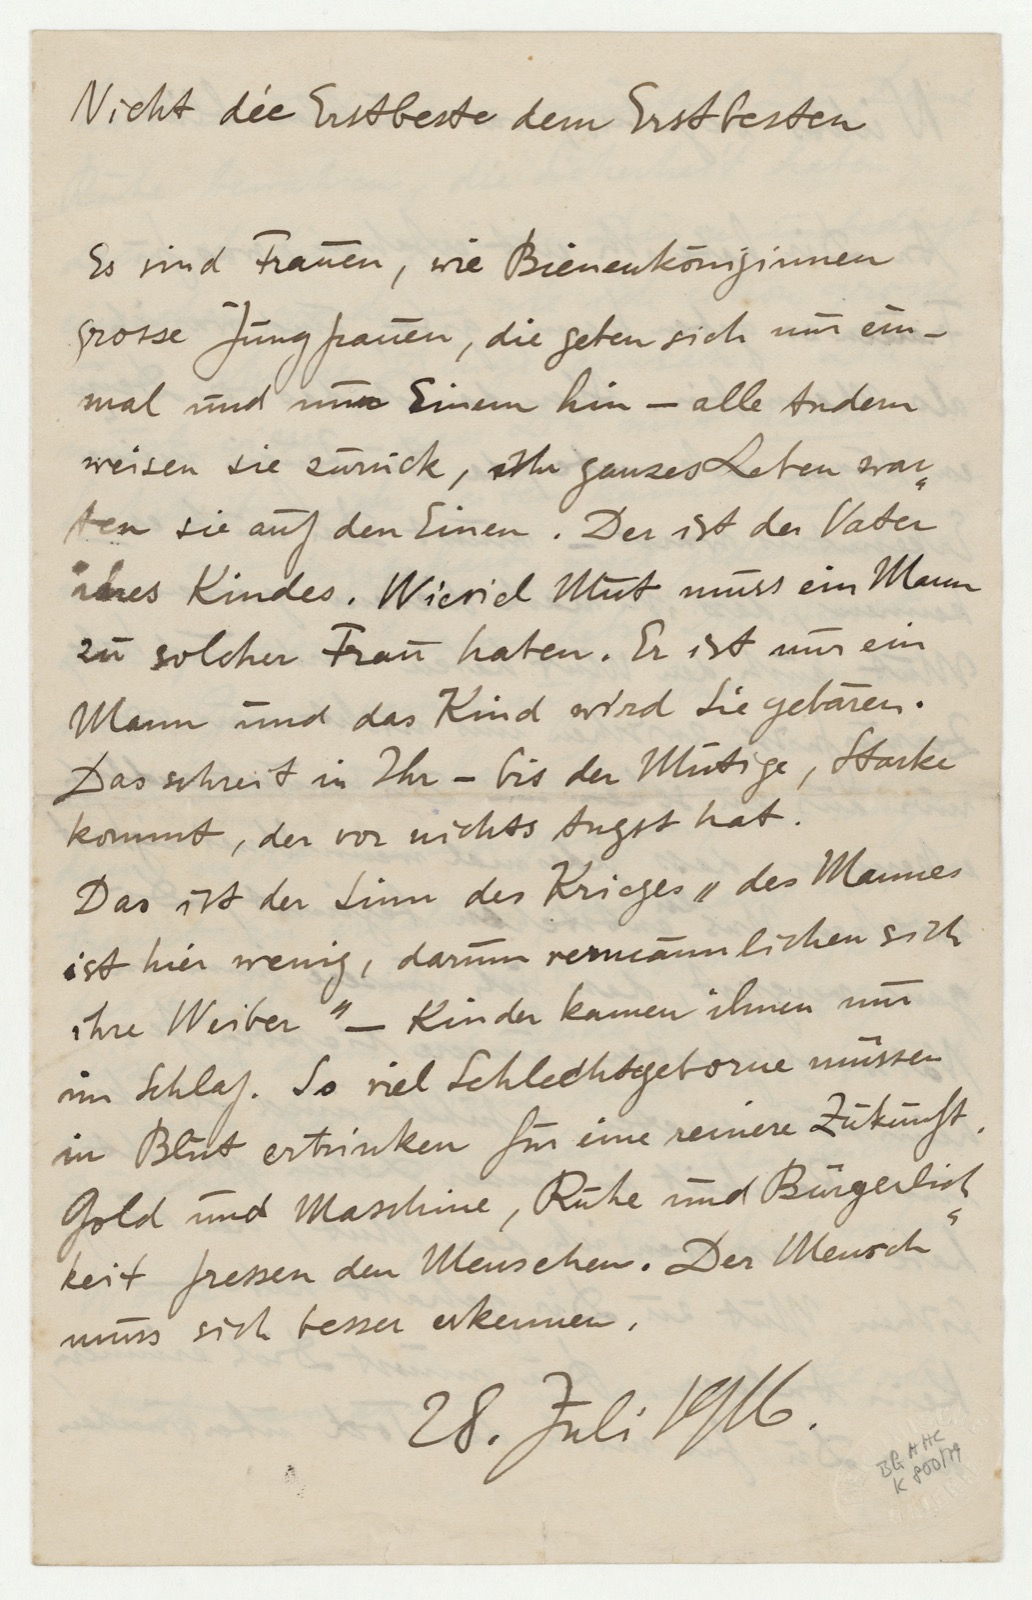 Nicht die Erstbeste dem Erstbesten
Es sind Frauen, wie Bienenköniginnen
grosse Jungfrauen, die geben sich nur ein-
mal und nur Einem hin – alle Andern
weisen sie zurück, Ihr ganzes Leben war„
ten sie auf den Einen. Der ist der Vater
ihres Kindes. Wieviel Mut muss ein Mann
zu solcher Frau haben. Er ist nur ein
Mann und das Kind wird Sie gebären.
Das schreit in Ihr – bis der Mutige, Starke
kommt, der vor nichts Angst hat.
Das ist der Sinn des Krieges „des Mannes
ist hier wenig, darum vermännlichen sich
ihre Weiber" – Kinder kamen ihnen nur
im Schlaf. So viel Schlechtgeborne müssen
in Blut ertrinken für eine reinere Zukunft.
Gold und Maschine, Ruhe und Bürgerlich„
keit fressen den Menschen. Der Mensch
muss sich besser erkennen.
28. Juli 1916.
BG H HC
K 800/79